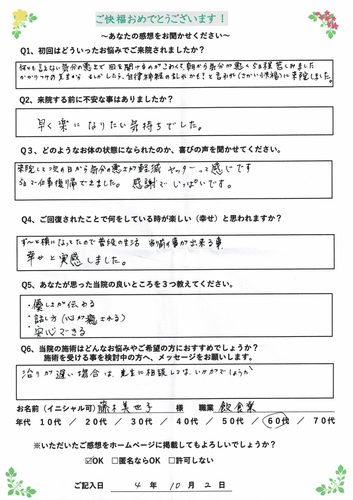 ご快福おめでとうございます！
～あなたの感想をお聞かせください～
Q1、初回はどういったお悩みでご来院されましたか？
何とも言えない気分の悪さで目を開けるのがこわくて朝から気分が悪く5日程苦しみました
かかりつけの先生から もしかしたら、自律神経の乱れかも！と言われ(こかい快福)に来院しました。
Q2、来院する前に不安な事はありましたか？
早く楽になりたい気持ちでした。
Q3、どのようなお体の状態になられたのか、喜びの声を聞かせてください。
来院して次の日から気分の悪さが軽減 ヤッターって感じです
5日で仕事復帰できました。 感謝でいっぱいです。
Q4、ご回復されたことで何をしている時が楽しい（幸せ）と思われますか？
ず～と横になってたので普段の生活 当り前の事が出来る事
幸せと実感しました。
Q5、あなたが思った当院の良いところを３つ教えてください。
・優しさが伝わる
・話し方（心が癒される）
・安心できる
Q6、当院の施術はどんなお悩みやご希望の方におすすめでしょうか？
施術を受ける事を検討中の方へ、メッセージをお願いします。
治りが遅い場合は、先生に相談しては、いかがでしょうか
お名前（イニシャル可） 藤本美世子 様 職業 飲食業
年代 10 / 20代 / 30代 / 40代 / 50代 / 60代 / 70代
※いただいたご感想をホームページに掲載してもよろしいでしょうか？
☑OK □匿名ならOK □許可しない
ご記入日 4 年 10 月 2 日